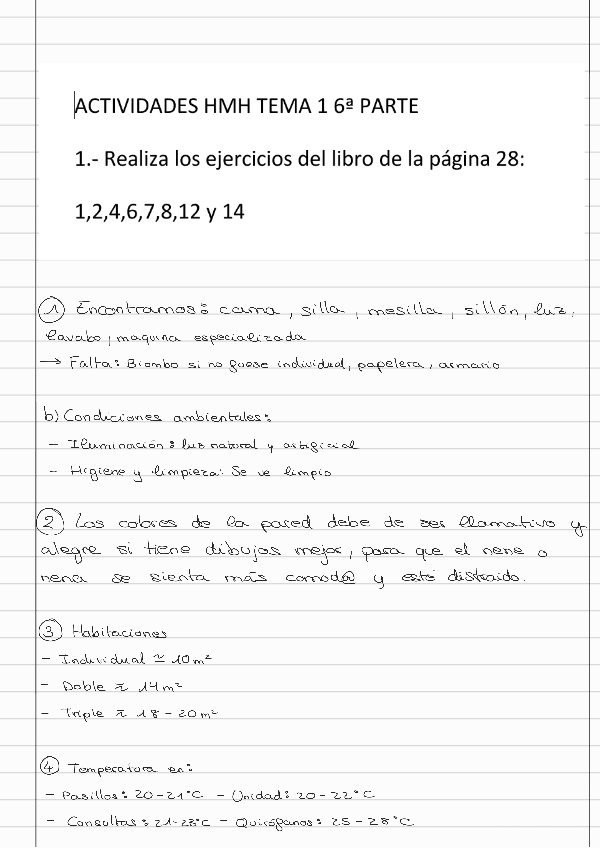 ACTIVIDADES HMH TEMA 1 6ª PARTE
1.- Realiza los ejercicios del libro de la página 28:
1,2,4,6,7,8,12 y 14
1 Encontramos: cama, silla, mesilla, sillón, luz,
lavabo, maquina especializada
→ Falta: Biombo si no fuese individual, papelera, armario
b) Condiciones ambientales:
- Iluminación: luz natural y artificial
- Higiene y limpieza: Se ve limpio
2 Los colores de la pared debe de ser llamativo y
alegre si tiene dibujos mejor, para que el nene o
nena se sienta más comod@ y esté distraido.
3 Habitaciones
- Individual ≃ 10 m²
- Doble ≈ 14 m²
- Triple ≈ 18 - 20 m²
4 Temperatura en:
- Pasillos: 20-21°C - Unidad: 20-22°C
- Consultas: 21-23°C - Quirófanos: 25-28°C